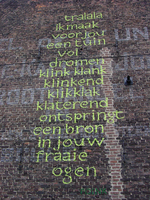 tralala
ik maak
voor jou
een tuin
vol
dromen
klink klank
klinkend
klikklak
klaterend
ontspringt
een bron
in jouw
fraaie
ogen